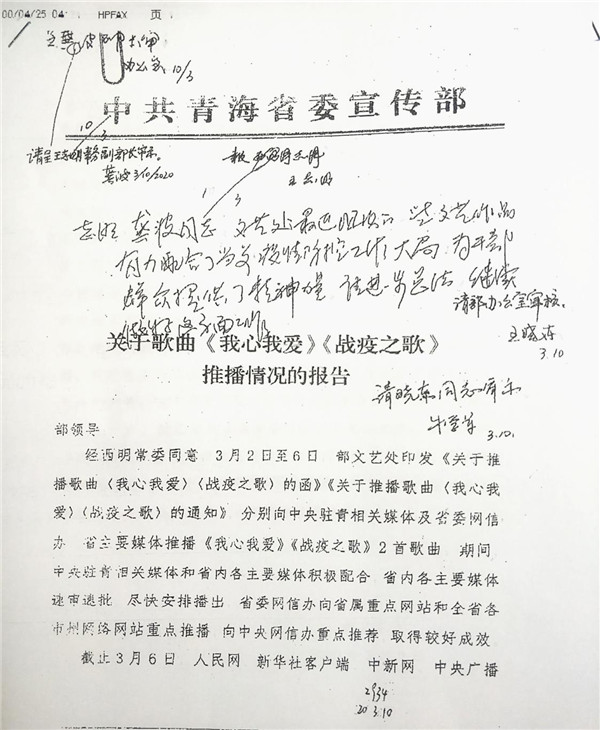 00/04/25 04: HPFAX 页
办公室 10/3
中共青海省委宣传部
10/3
请呈
龚波 3/10/2020
3
志明 龚波同志 文艺处最近组织的一些文艺作品
有力配合了当前疫情防控工作大局 为干部
群众提供了精神力量 请进一步总结 继续
做好这方面工作
请部办公室审核。
王晓东
3.10
关于歌曲《我心我爱》《战疫之歌》
推播情况的报告
请晓东同志审示
3.10.
部领导
经西明常委同意 3月2日至6日 部文艺处印发《关于推
播歌曲〈我心我爱〉〈战疫之歌〉的函》《关于推播歌曲〈我心我
爱〉〈战疫之歌〉的通知》 分别向中央驻青相关媒体及省委网信
办 省主要媒体推播《我心我爱》《战疫之歌》2首歌曲 期间
中央驻青相关媒体和省内各主要媒体积极配合 省内各主要媒体
速审速批 尽快安排播出 省委网信办向省属重点网站和全省各
市州网络网站重点推播 向中央网信办重点推荐 取得较好成效
截止3月6日 人民网 新华社客户端 中新网 中央广播
2934
20 3.10